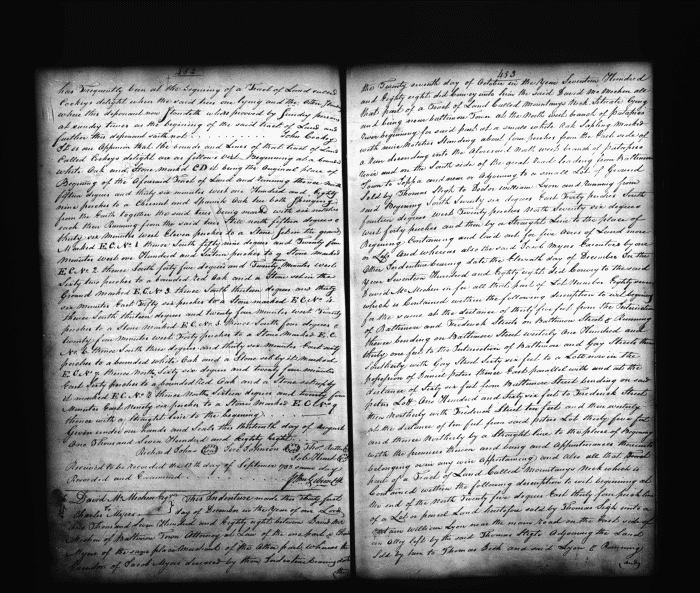 432
has Frequently been at the begining of a Tract of Land called
Cockeys delight when the said tree was lying and the
where this deponent now Standeth where proved by Sundry persons
at sundry times as the begining of the said tract of Land and
further this deponent saith not John Cockey
It is our Opinion that the bounds and Lines of that tract of Land
Called Cockeys delight are as follows viz. Begining at a bounded
White Oak and Stone Marked CD it being the Original place of
Begining of the aforesaid Tract of Land and running thence North
fifteen degrees and thirty six minutes west one Hundred and Eighty
nine perches to a Chesnut and Spanish Oak two both springing
from the Earth together the said trees being marked with six notches
each then Running from the said trees Still north fifteen degrees &
thirty six Minutes West Eleven perches to a Stone fix'd in the ground
Marked E.C. No. 1 thence South fifty nine degrees and Twenty four
Minutes West One Hundred and Sixteen perches to a Stone Marked
E.C. No. 2 thence South forty five degrees and Twenty Minutes West
Sixty two perches to a bounded red oak and a Stone set in the
Ground Marked E.C. No. 3 thence South thirteen degrees and thirty
six Minutes East fifty six perches to a Stone marked E.C. No. 4
thence South thirteen degrees and twenty four Minutes West Twenty
perches to a Stone Marked E.C. No. 5 thence South four degrees &
twenty four Minutes West Forty perches to a Stone Marked E.C.
No. 6 thence South three degrees and thirty six Minutes East
perches to a bounded White Oak and a Stone set by it marked
E.C. No. 7 thence North Sixty six degrees and twenty four minutes
East Sixty perches to a bounded Red Oak and a Stone set by
it marked E.C. No. 8 thence North Sixteen degrees and twenty four
Minutes East Ninety six perches to a Stone Marked E.C. No. 9
thence with a Straight line to the begining
Given under our hands and Seals this thirteenth day of August
One Thousand Seven Hundred and Eighty Eight
Richard Johns Joel Johnson Thos
Job
Received to be recorded the 17th day of September 1788 same day
Recorded and Examined
David McMechen Esqr This Indenture made this thirty first
to Charles Myers day of December in the Year of our Lord
One Thousand Seven Hundred and Eighty eight between David Mc
Mechen of Baltimore Town Attorney at Law of the one part & Charles
Myers of the same place Merchant of the Other part whereas the
of Jacob Myers deceased by their Indenture bearing date
the

433
the Twenty seventh day of October in the Year Seventeen Hundred
and Eighty eight did Convey unto him the said David McMechen all
that part of a Tract of Land Called Mountanys Neck Situate lying
and being near Baltimore Town at the North west branch of patapsco
River begining for said part at a small white Oak Sapling Marked
with nine Notches Standing about four perches from the East side of
a Run descending into the aforesaid North west branch of patapsco
river and on the South side of the great road leading from Baltimore
Town to Joppa and near or adjoining to a small Lot of Ground
Sold by Thomas Sligh to Doctor William Lyon and Running from
said Begining South Seventy six degrees East Forty perches South
fourteen degrees west Twenty perches North Seventy six degrees
west forty perches and then by a straight Line to the place of
Begining Containing and laid out for five Acres of Land more
or Less And whereas also the said Jacob Myers Executors by one
Other Indenture bearing date the Eleventh day of December In the
Year Seventeen Hundred and Eighty eight did Convey to the said
David McMechen in fee all that part of Lot Number Eighty seven
which is Contained within the following description to wit begining
for the same at the distance of thirty five feet from the Intersection
of Baltimore and Frederick Streets on Baltimore Street & Running
thence bending on Baltimore Street westerly One Hundred and
thirty one feet to the Intersection of Baltimore and Gay Streets then
Southerly with Gay Street Sixty six feet to a Lot now in the
possession of Daniel peters thence East parallel with and at the
distance of Sixty six feet from Baltimore Street bending on said
peters Lott One Hundred and Sixty six feet to Frederick Street
then Northerly with Frederick Street ten feet and then westerly
at the distance of ten feet from said peters Lot thirty five feet
and thence Northerly by a Straight line to the place of Begining
with the premises thereon and being and Appurtenances thereunto
belonging or in any wise appertaining and also all that
part of a Tract of Land Called Mountanys Neck which is
Contained within the following description to wit beginning at
the end of the North Twenty five degrees East thirty four perch line
of a Lot or parcel Land heretofore sold by Thomas Sligh unto a
Certain william Lyon near the main road on the East side of
an Alley left by the said Thomas Sligh Adjoining the Land
Sold by him to Thomas and said Lyon & Running